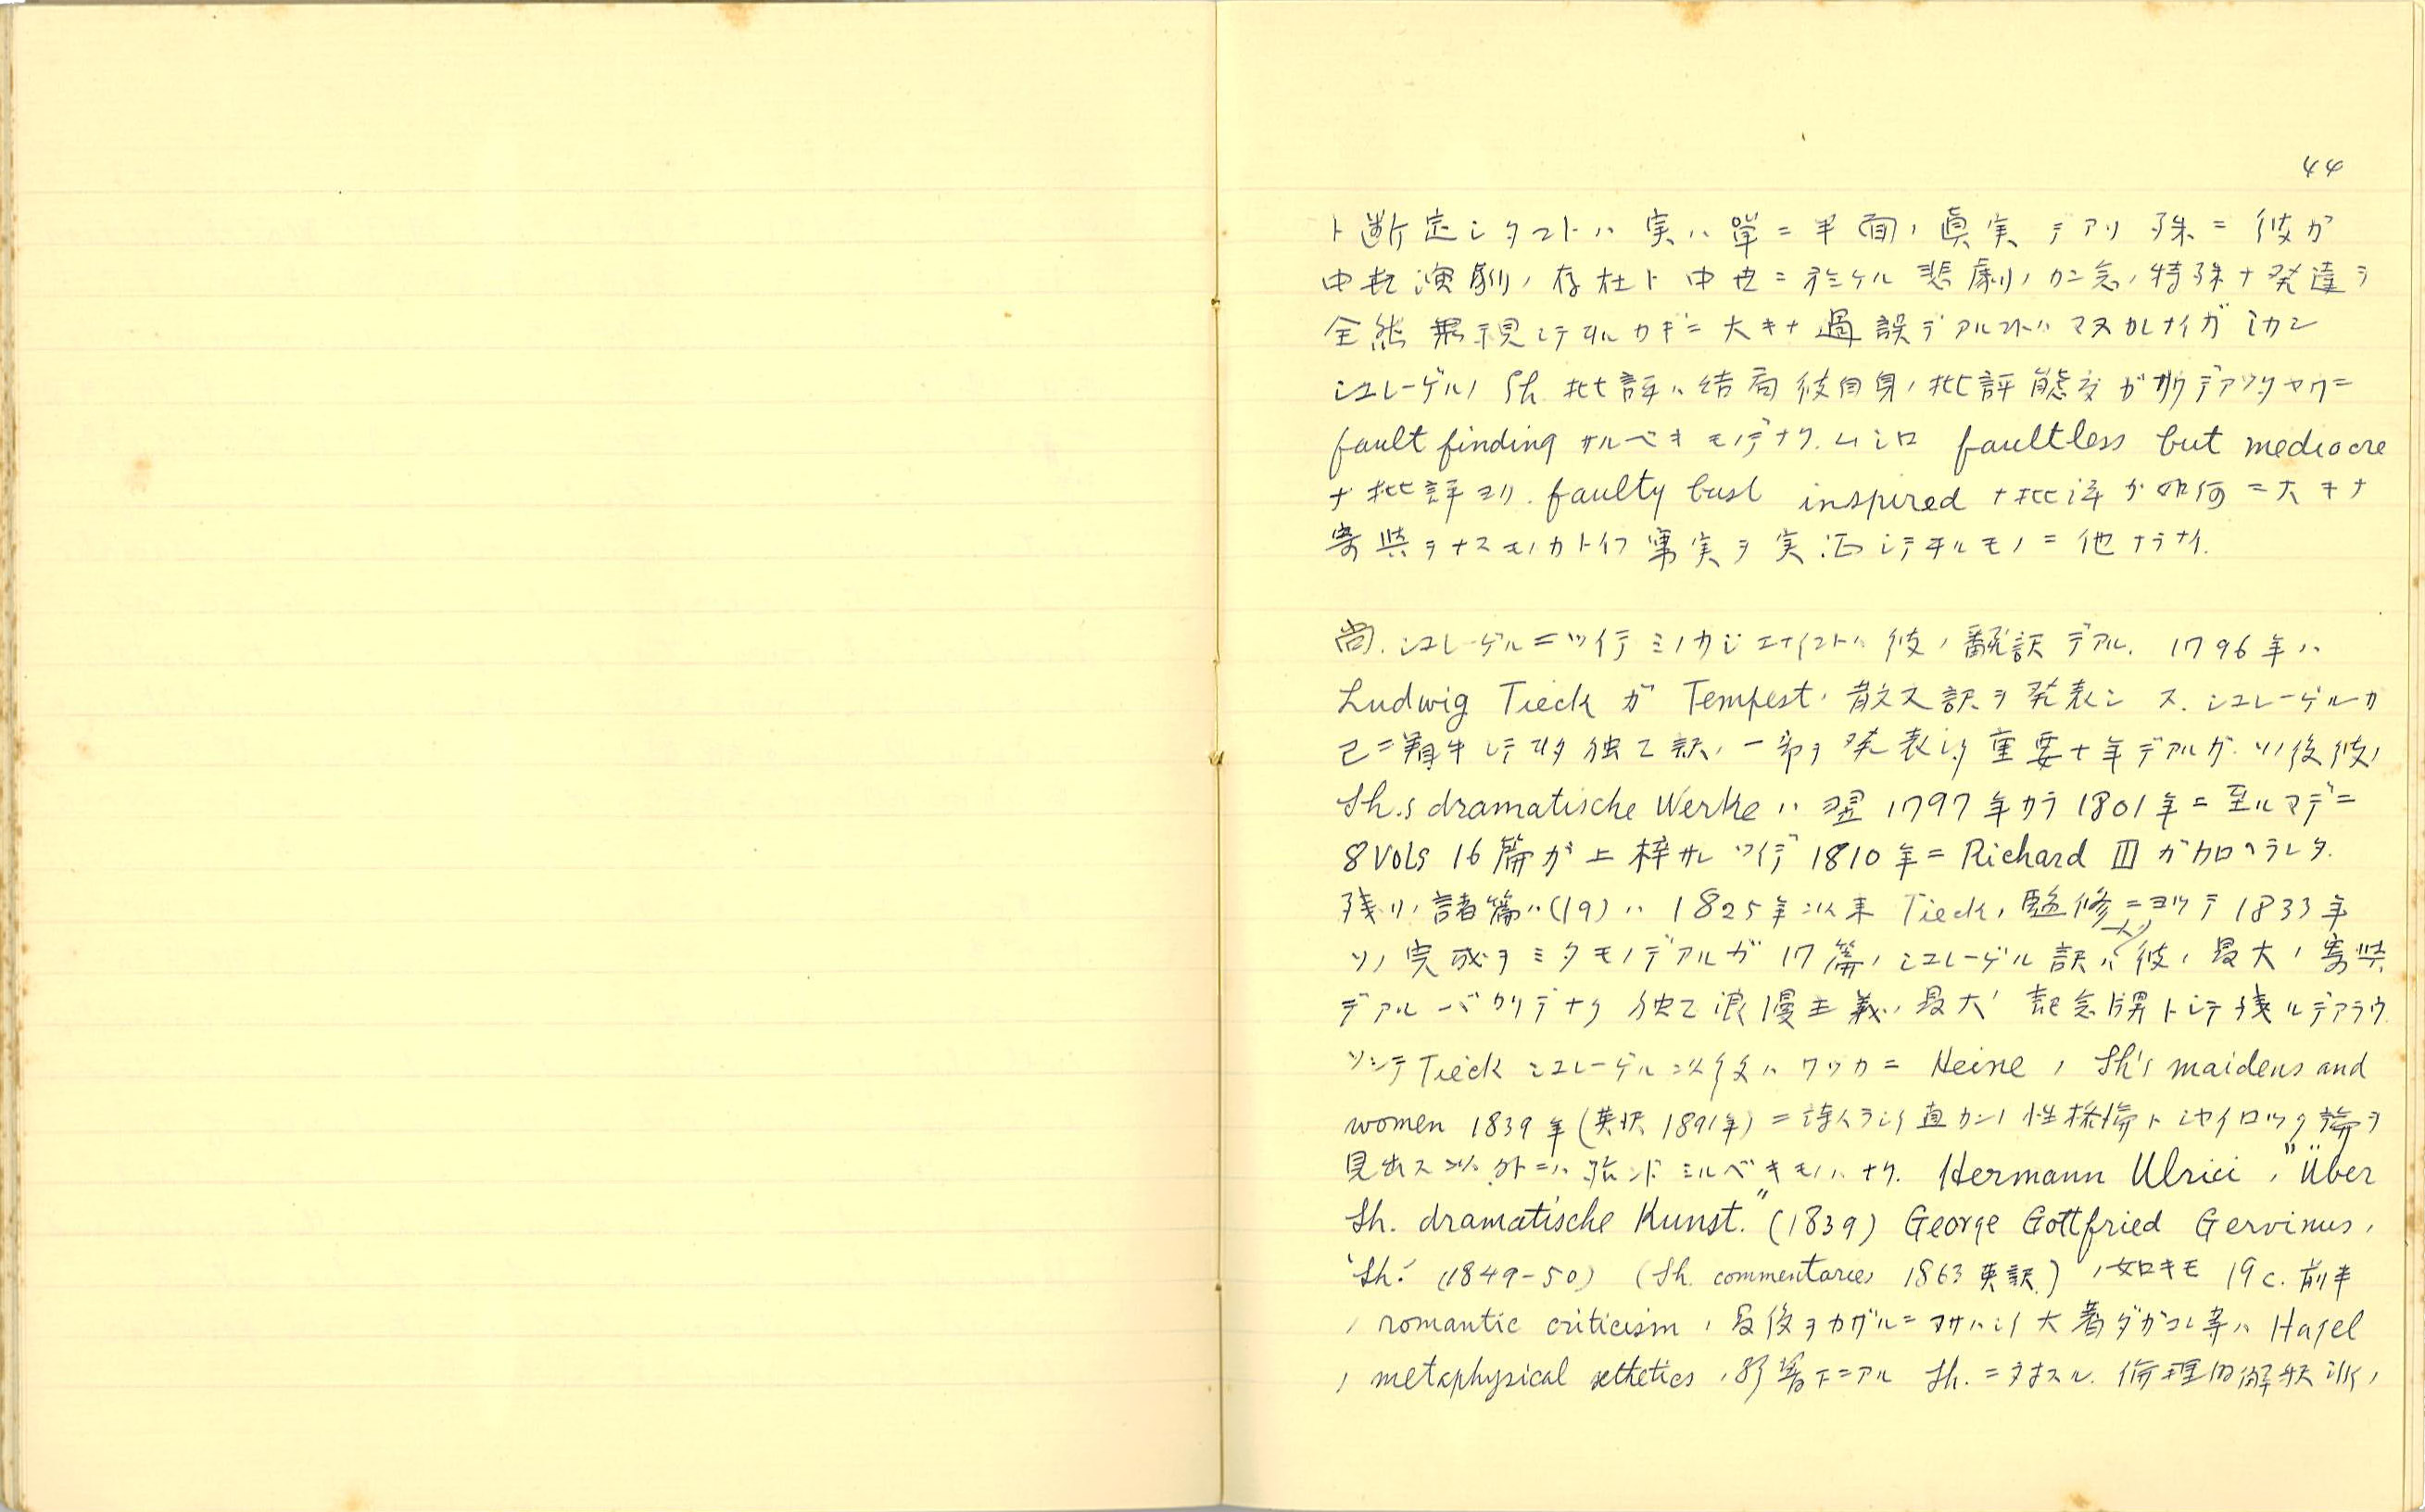 44
ト断定シタコトハ実ハ單ニ半面ノ眞実デアリ殊ニ彼ガ
中世演劇ノ存在ト中世ニ於ケル悲劇ノカン念ノ特殊ナ発達ヲ
全然無視シテヰルカギニ大キナ過誤デアルコトハマヌカレナイガシカシ
シュレーゲルノSh.批評ハ結局彼自身ノ批評態度ガサウデアッタヤウニ
fault finding サルベキモノデナク.ムシロ faultless but mediocre
ナ批評ヨリ. faulty but inspired ナ批評ガ如何ニ大キナ
寄与ヲナスモノカトイフ事実ヲ実証シテヰルモノニ他ナラナイ.
尚.シュレーゲルニツイテミノガシエナイコトハ彼ノ翻訳デアル. 1796年ハ
Ludwig Tieck ガ Tempest ノ散文訳ヲ発表シ 又.シュレーゲルガ
已ニ着手シテヰタ独乙訳ノ一部ヲ発表シタ重要ナ年デアルガ.ソノ後彼ノ
Sh.s dramatische Werke ハ翌1797年カラ1801年ニ至ルマデニ
8 Vols 16篇ガ上梓サレツイデ1810年ニ Richard III ガ加ヘラレタ.
残リノ諸篇ハ(19)ハ1825年以来 Tieck ノ監修ニヨッテ1833年
ソノ完成ヲミタモノデアルガ17篇ノシュレーゲル訳ハ彼ノ最大ノ寄与
デアルバカリデナク独乙浪漫主義ノ最大ノ記念牌トシテ残ルデアラウ.
ソシテ Tieck シュレーゲル以後ハワヅカニ Heine ノ Sh's maidens and
women 1839年(英訳1891年)ニ詩人ラシイ直カンノ性格論トシャイロック論ヲ
見出ス以外ニハ殆ンドミルベキモノハナク. Hermann Ulrici ノ "Über
Sh. dramatische Kunst." (1839) George Gottfried Gervinus ノ
'Sh.' (1849-50) (Sh. commentaries 1863 英訳) ノ如キモ 19c. 前半
ノ romantic criticism ノ最後ヲカザルニフサハシイ大著ダガコレ等ハ Hagel
ノ metaphysical aethetics ノ影響下ニアル Sh. ニ対スル.倫理的解釈派ノ